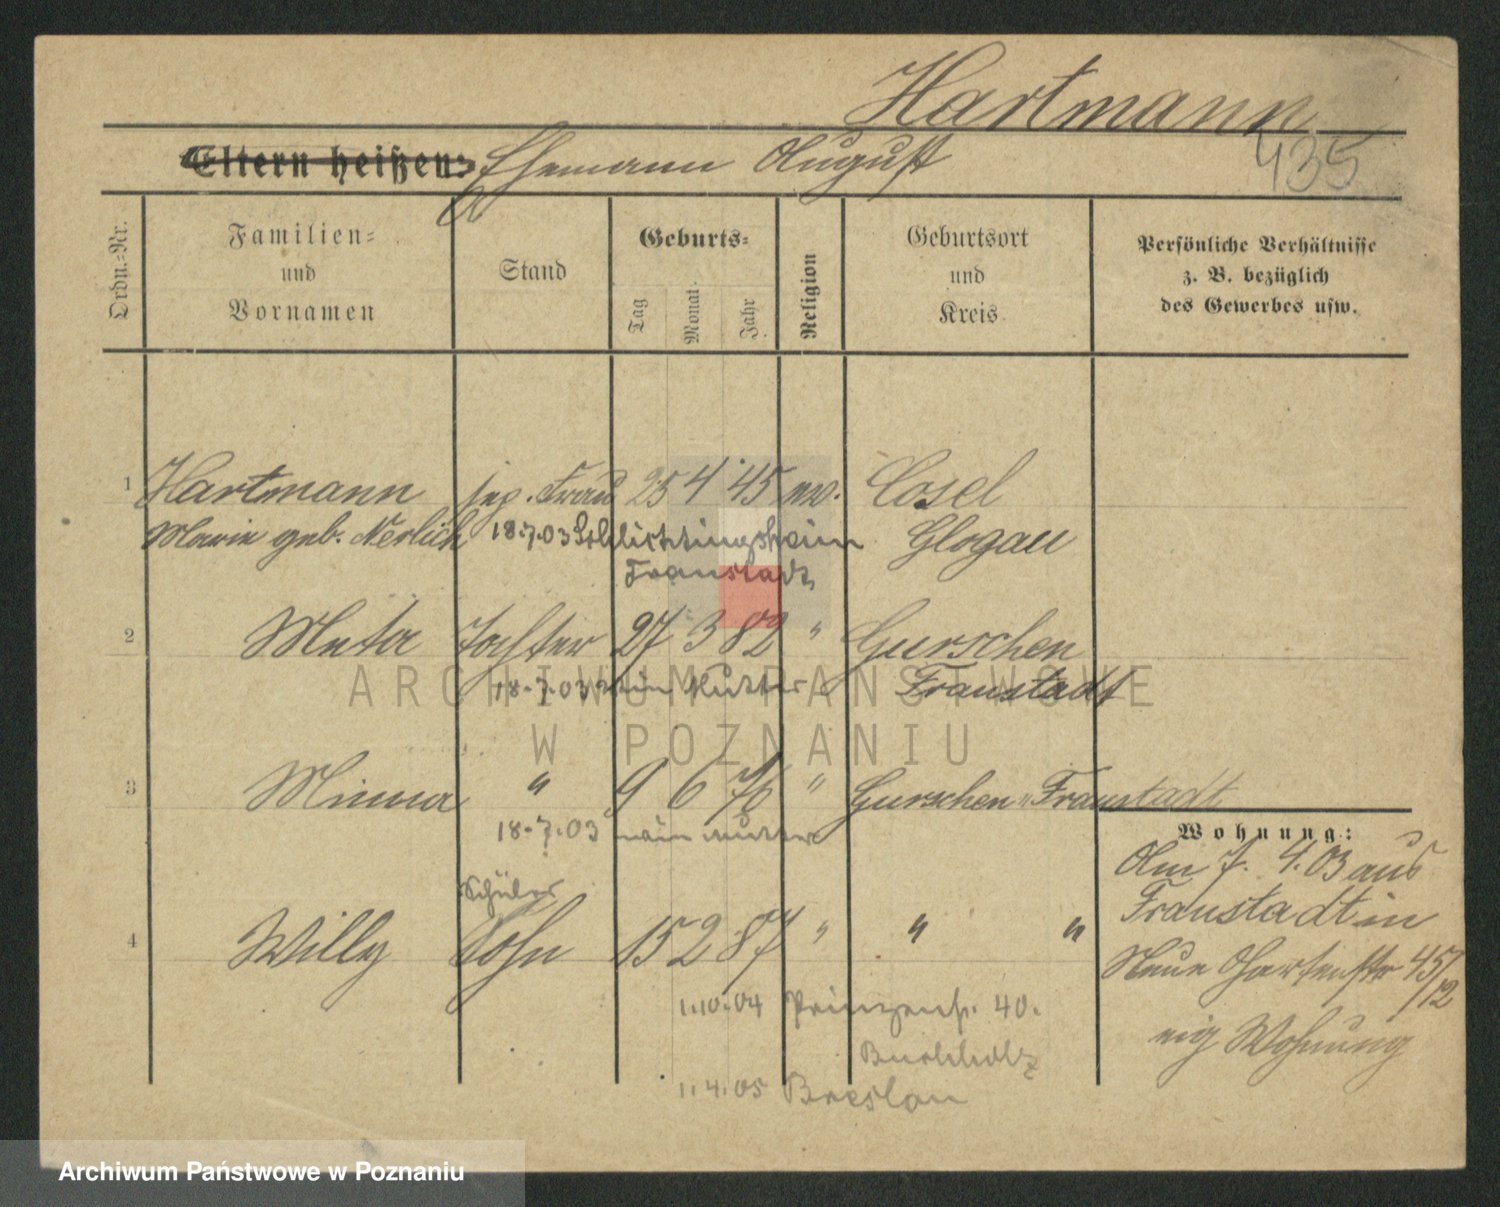 Hartmann
435
Eltern heißen: Ehemann August
Ordn.-Nr.
Familien-
und
Vornamen
Stand
Geburts-
Tag
Monat
Jahr
Religion
Geburtsort
und
Kreis
Persönliche Verhältnisse
z. B. bezüglich
des Gewerbes usw.
1 Hartmann Frau 25 4 45 Cosel
Marie geb. Nerlich 18.7.03 Schlichtingsheim Glogau
Fraustadt
2 Meta Tochter 27 3 82 " Gurschen
18.7.03 Mutter Fraustadt
3 Minna " 9 6 76 " Gurschen Fraustadt
18.7.03 Mutter
Wohnung:
Am 7. 4. 03 aus
Fraustadt in
Neue Gartenstr 45/12
eig Wohnung
Schüler
4 Willy Sohn 15 2 87 " " "
1.10.04 Prinzenstr. 40.
Buchholz
1.4.05 Breslau
ARCHIWUM PAŃSTWOWE
W POZNANIU
Archiwum Państwowe w Poznaniu